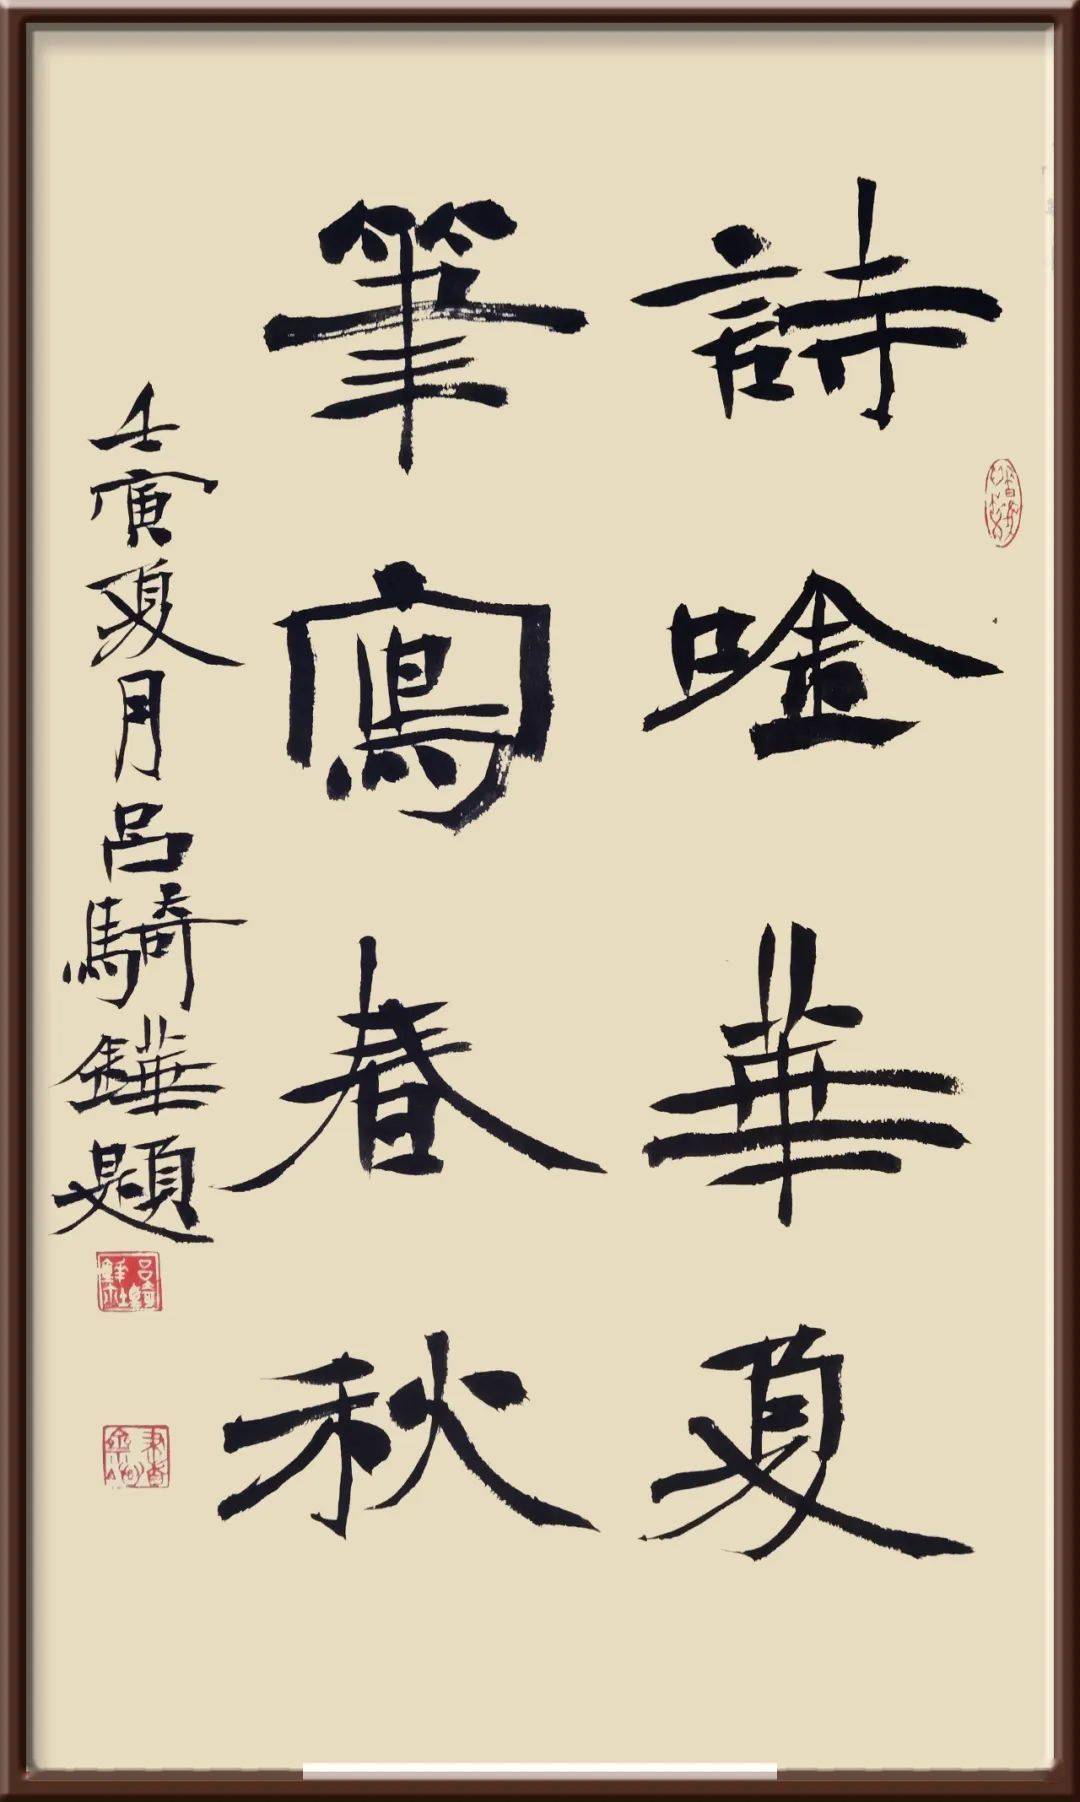 詩唫華夏
筆寫春秋
壬寅夏月呂騎鏵題